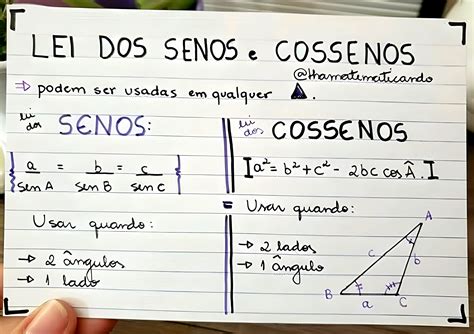 LEI DOS SENOS e COSSENOS
@thamatematicando
⇒ podem ser usadas em qualquer ▲.
lei dos SENOS:
a/sen A = b/sen B = c/sen C
Usar quando:
→ 2 ângulos
→ 1 lado
lei dos COSSENOS
a² = b² + c² - 2bc cos Â.
Usar quando:
→ 2 lados
→ 1 ângulo
A
c
b
B
a
C